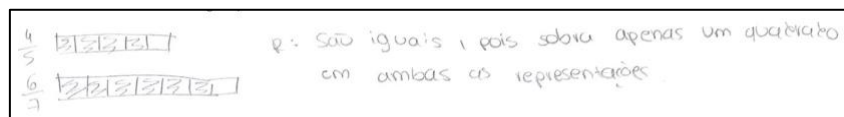 4/5 R: São iguais, pois sobra apenas um quadrado
6/7 em ambas as representações.